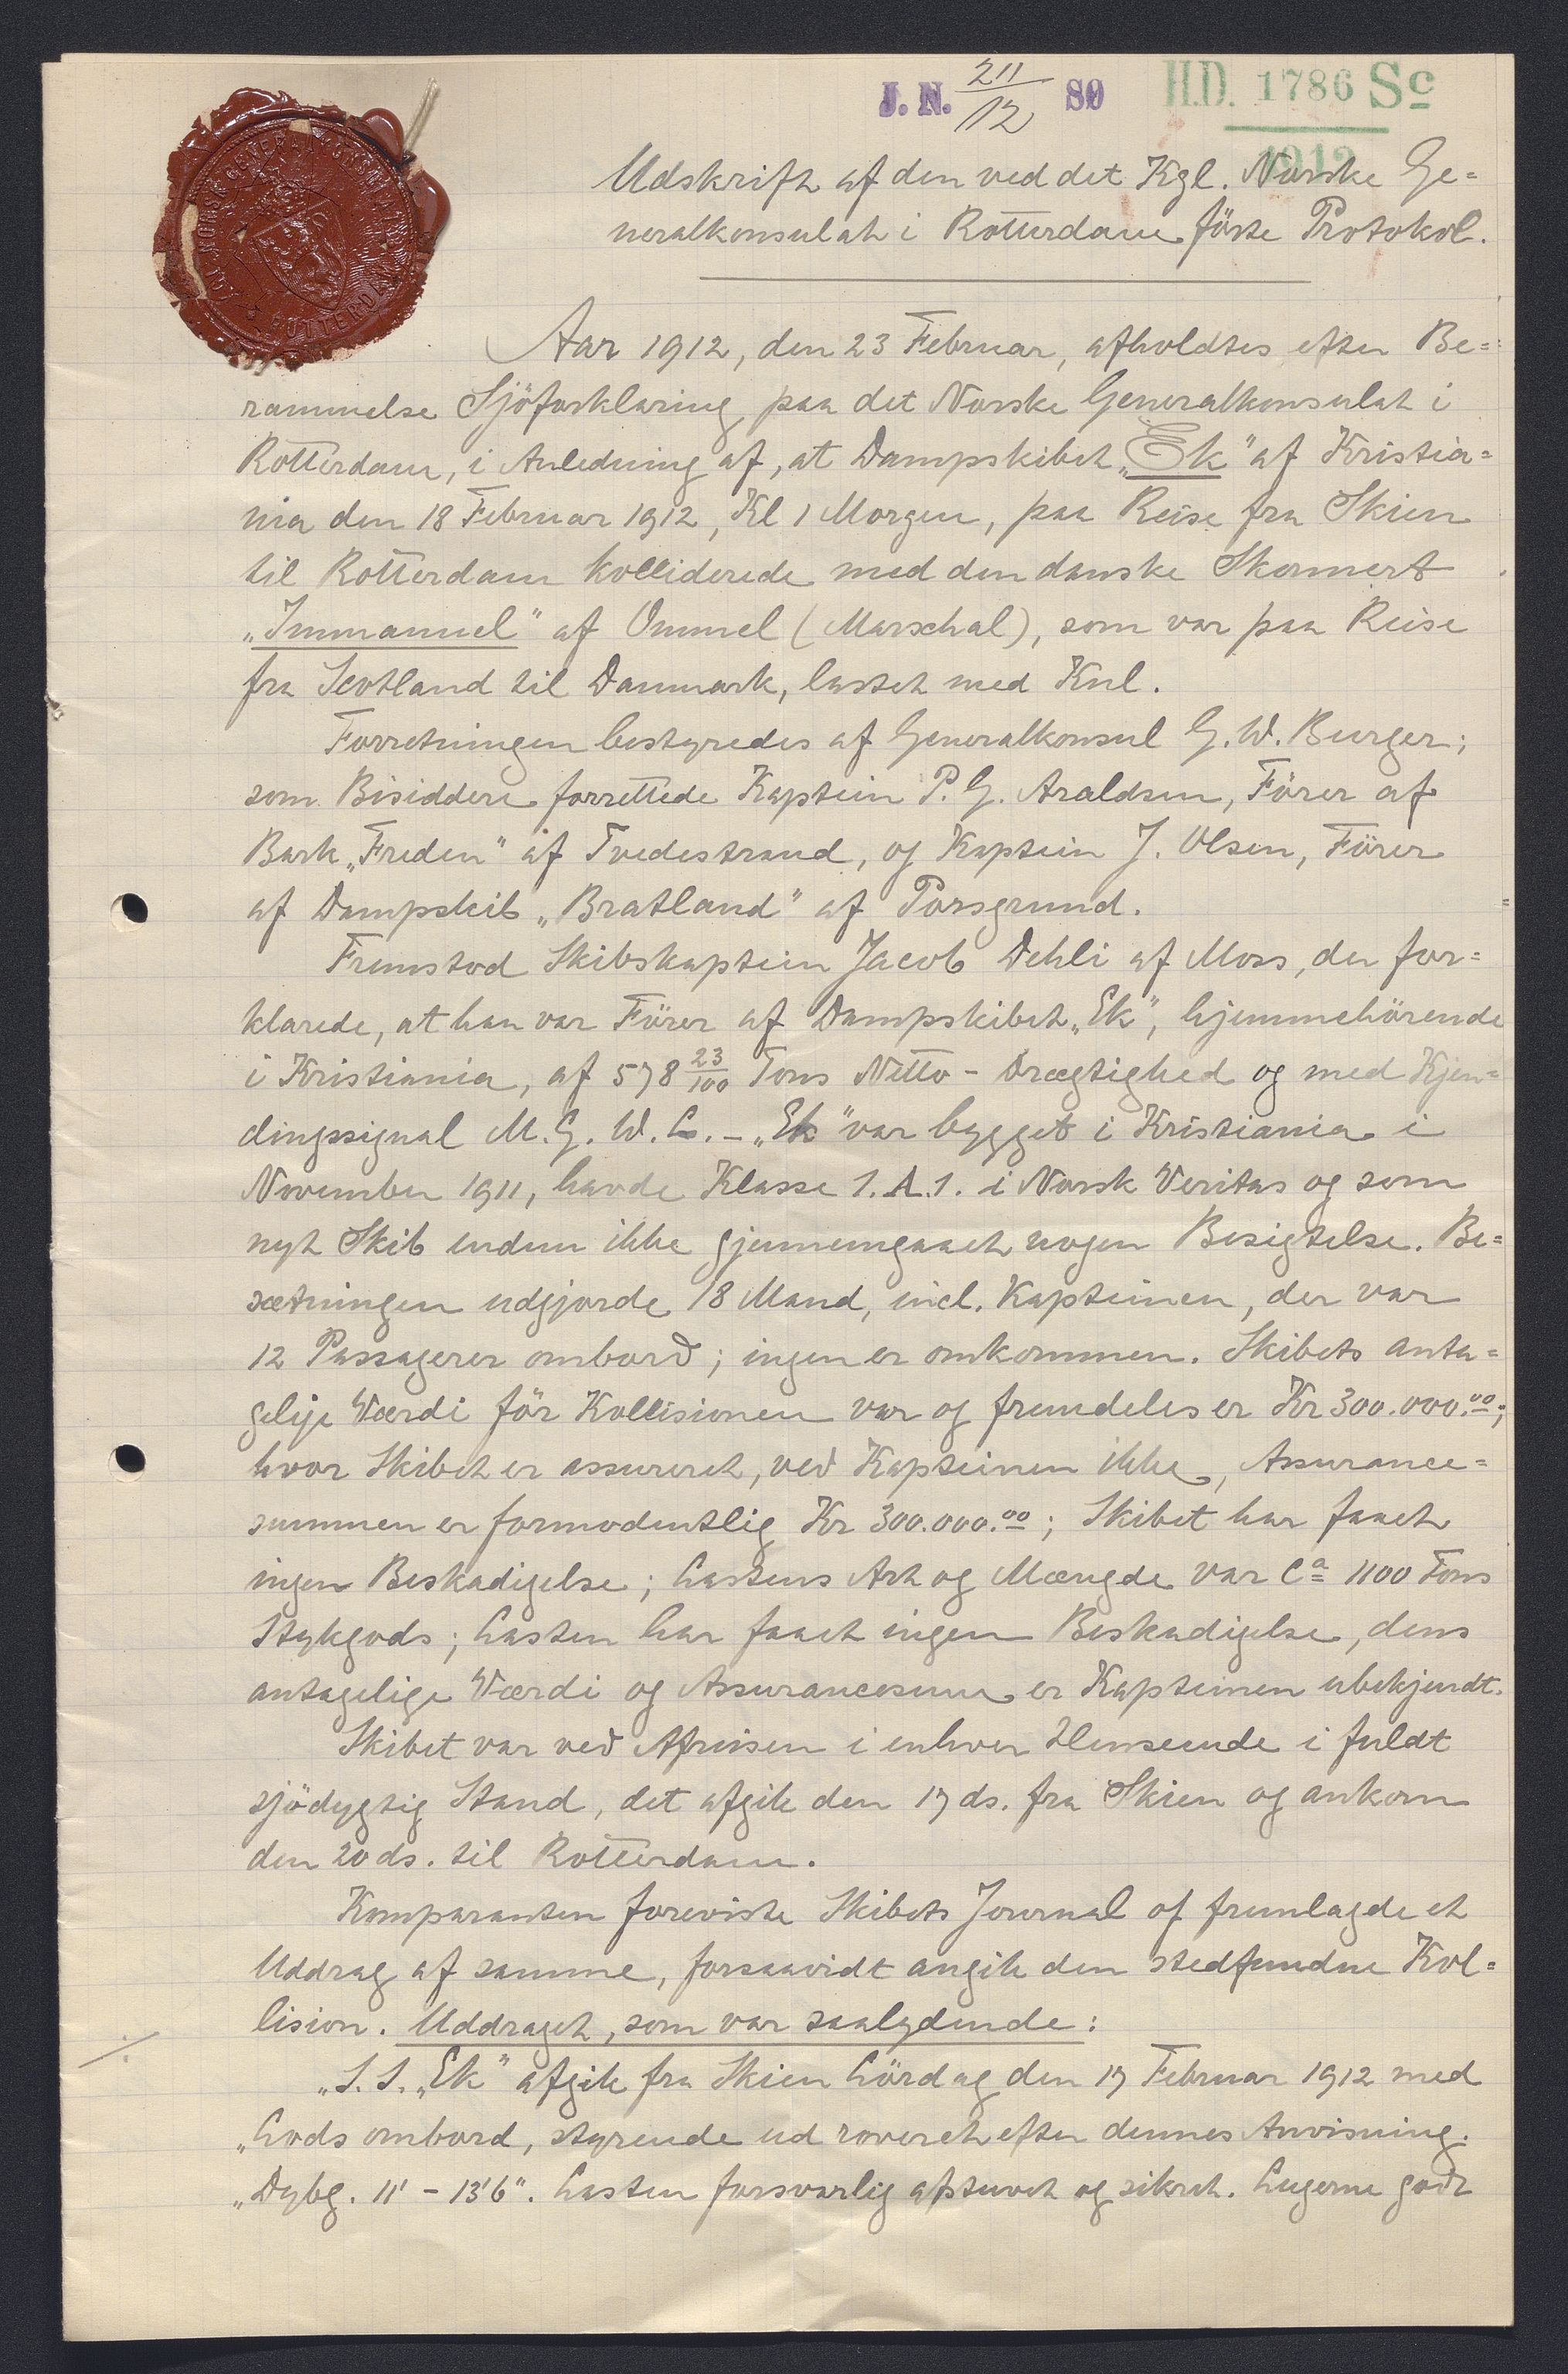 J. N. 211/12 80 H.D. 1786 Sc
1912
Udskrift af den ved det Kgl. Norske Ge=
neralkonsulat i Rotterdam förte Protokol.
Aar 1912, den 23 Februar, afholdtes efter Be=
rammelse Sjöforklaring paa det Norske Generalkonsulat i
Rotterdam, i Anledning af, at Dampskibet „Ek" af Kristia=
nia den 18 Februar 1912, Kl 1 Morgen, paa Reise fra Skien
til Rotterdam kolliderede med den danske Skonnert
„Immanuel" af Ommel (Marschal), som var paa Reise
fra Scotland til Danmark, lastet med Kul.
Forretningen bestyredes af Generalkonsul G. W. Burger;
som Bisiddere forrettede Kaptein P. G. Araldsen, Förer af
Bark „Freden" af Tvedestrand, og Kaptein J. Olsen, Förer
af Dampskib „Bratland" af Porsgrund.
Fremstod Skibskaptein Jacob Dehli af Moss, der for=
klarede, at han var Förer af Dampskibet „Ek", hjemmehörende
i Kristiania, af 578 23/100 Tons Netto - Drægtighed og med Kjen=
dingssignal M. G. W. C. - „Ek" var bygget i Kristiania i
November 1911, havde Klasse 1. A. 1. i Norsk Veritas og som
nyt Skib endnu ikke gjennemgaaet nogen Besigtelse. Be=
sætningen udgjorde 18 Mand, incl. Kapteinen, der var
12 Passagerer ombord; ingen er omkommen. Skibets anta=
gelige Værdi för Kollisionen var og fremdeles er Kr 300.000.00;
hvor Skibet er assureret, ved Kapteinen ikke, Assurance=
summen er formodentlig Kr 300.000.00; Skibet har faaet
ingen Beskadigelse; Lastens Art og Mængde var Ca 1100 Tons
Stykgods; Lasten har faaet ingen Beskadigelse, dens
antagelige Værdi og Assurancesum er Kapteinen ubekjendt.
Skibet var ved Afreisen i enhver Henseende i fuldt
sjödygtig Stand, det afgik den 17 ds. fra Skien og ankom
den 20 ds. til Rotterdam.
Komparanten foreviste Skibets Journal og fremlagde et
Uddrag af samme, forsaavidt angik den stedfundne Kol=
lision. Uddraget, som var saalydende:
„S. S. „Ek" afgik fra Skien Lördag den 17 Februar 1912 med
„Lods ombord, styrende ud roveret efter dennes Anvisning.
„Dybg. 11' - 13'6". Lasten forsvarlig afstuvet og sikret. Lugerne godt